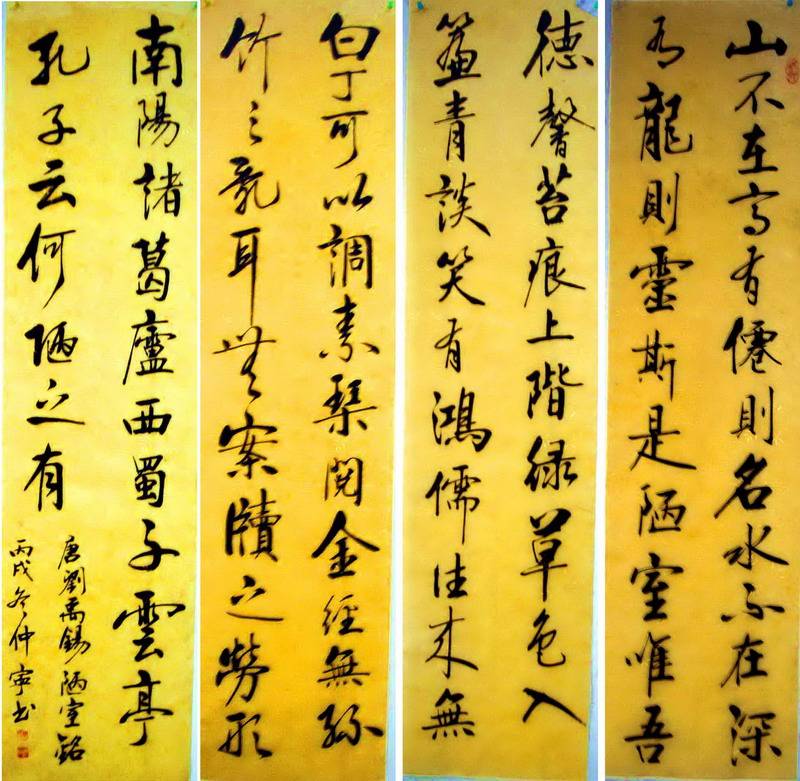 山不在高有僊則名水不在深
有龍則靈斯是陋室唯吾
德馨苔痕上階緑草色入
簾青談笑有鴻儒往来無
白丁可以調素琴閱金經無絲
竹之亂耳無案牘之勞形
南陽諸葛廬西蜀子雲亭
孔子云何陋之有
唐劉禹錫陋室銘
丙戌冬仲寧书